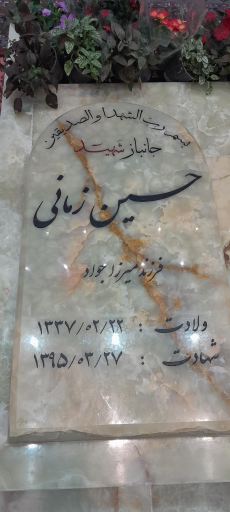 بسم رب الشهدا و الصدیقین
جانباز شهید
حسین زمانی
فرزند میرزا جواد
ولادت : ۱۳۳۷/۰۲/۲۲
شهادت : ۱۳۹۵/۰۳/۲۷